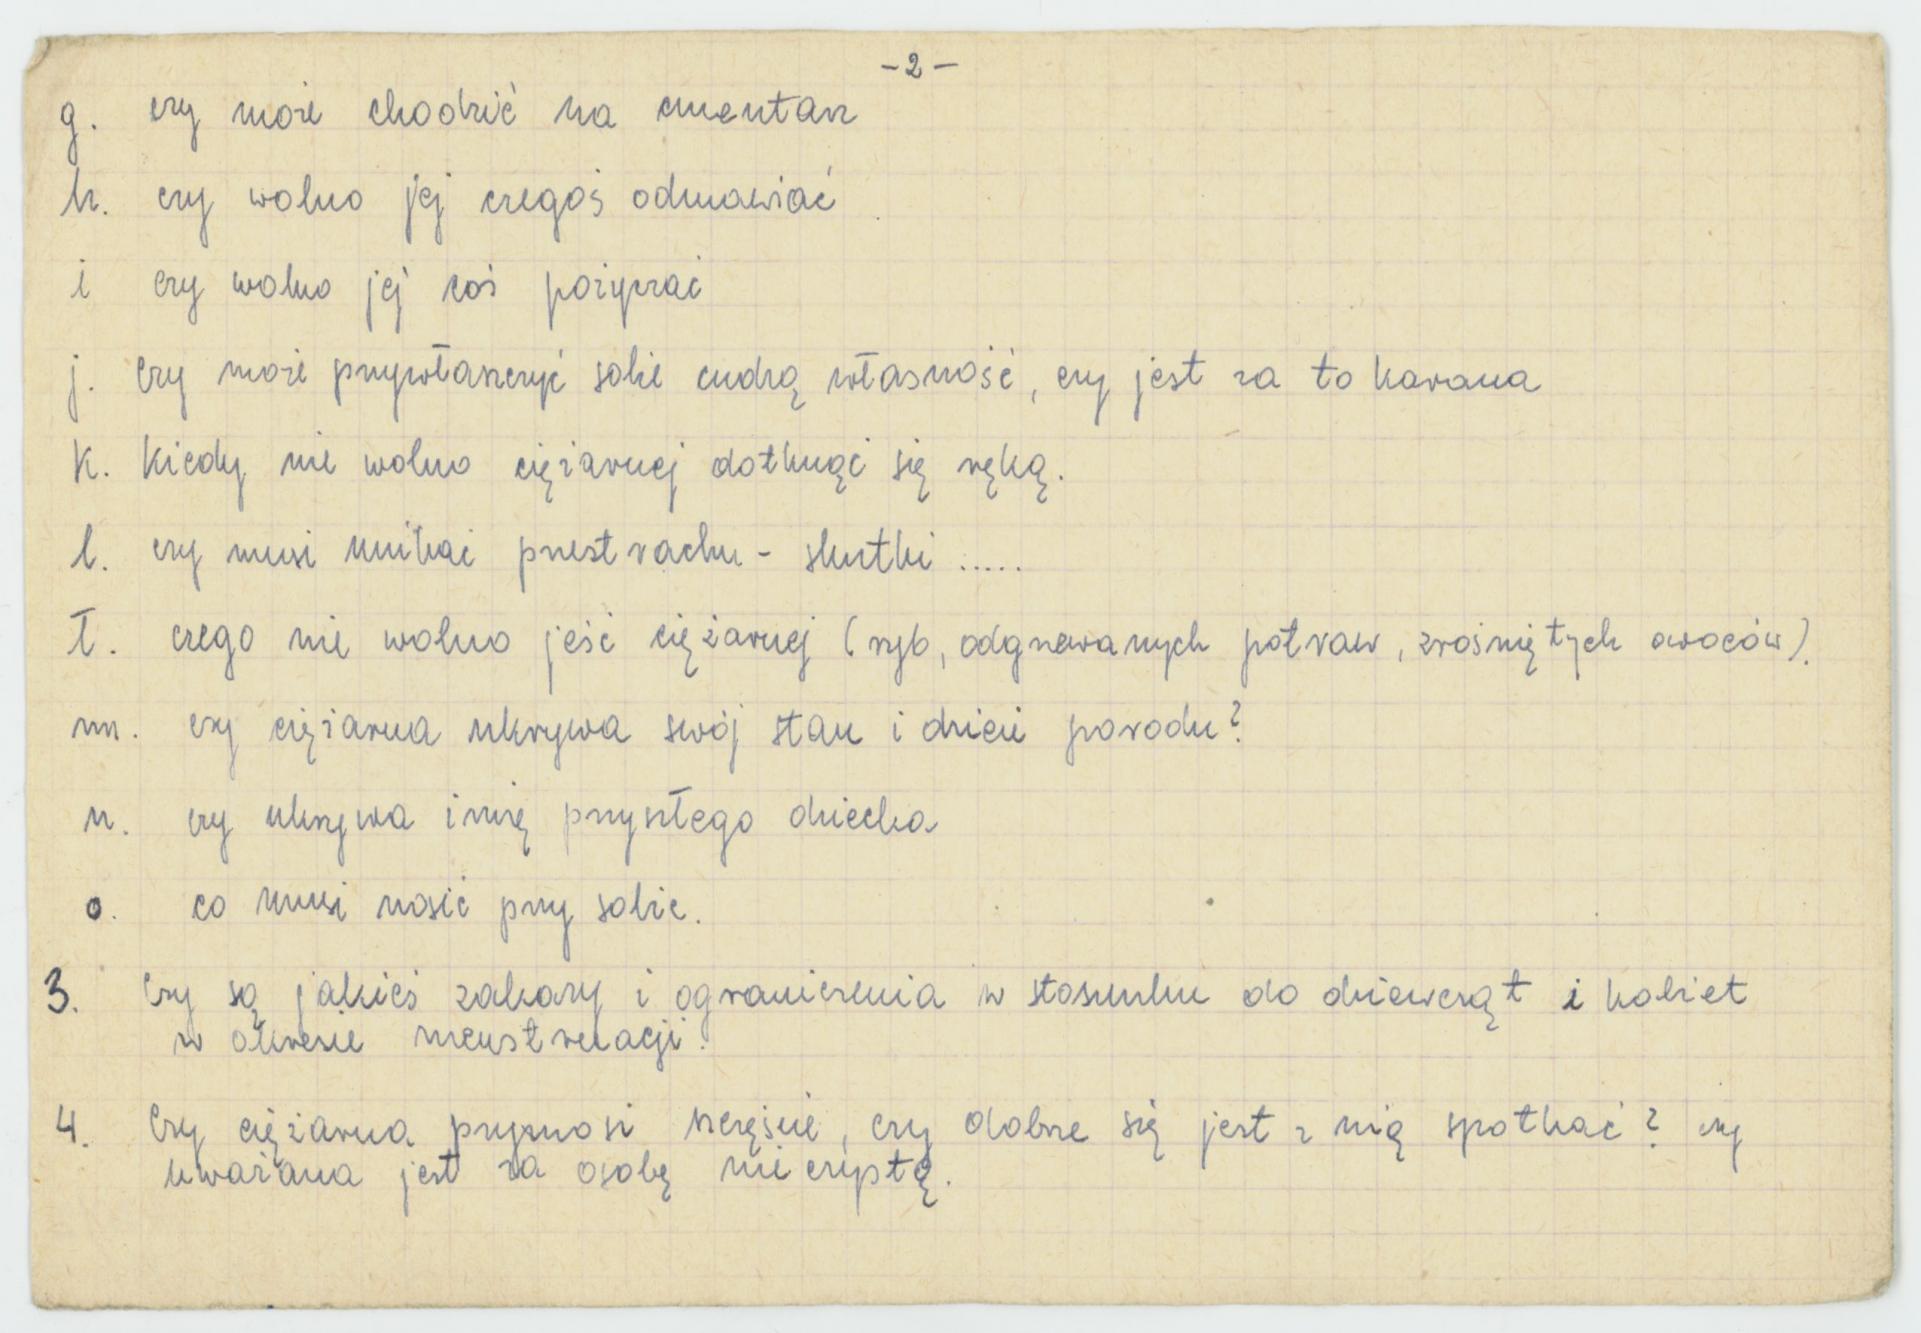 -2-
g. czy może chodzić na cmentarz
h. czy wolno jej czegoś odmawiać
i czy wolno jej coś pożyczać
j. czy może przywłaszczyć sobie cudzą własność, czy jest za to karana
k. kiedy nie wolno ciężarnej dotknąć się ręką.
l. czy musi unikać przestrachu - skutki .....
ł. czego nie wolno jeść ciężarnej (ryb, odgrzewanych potraw, zrośniętych owoców).
m. czy ciężarna ukrywa swój stan i dzień porodu?
n. czy ukrywa imię przyszłego dziecka
o. co musi nosić przy sobie.
3. Czy są jakieś zakazy i ograniczenia w stosunku do dziewcząt i kobiet
w okresie menstruacji?
4. Czy ciężarna przynosi szczęście, czy dobrze się jest z nią spotkać? czy
uważana jest za osobę nieczystą.